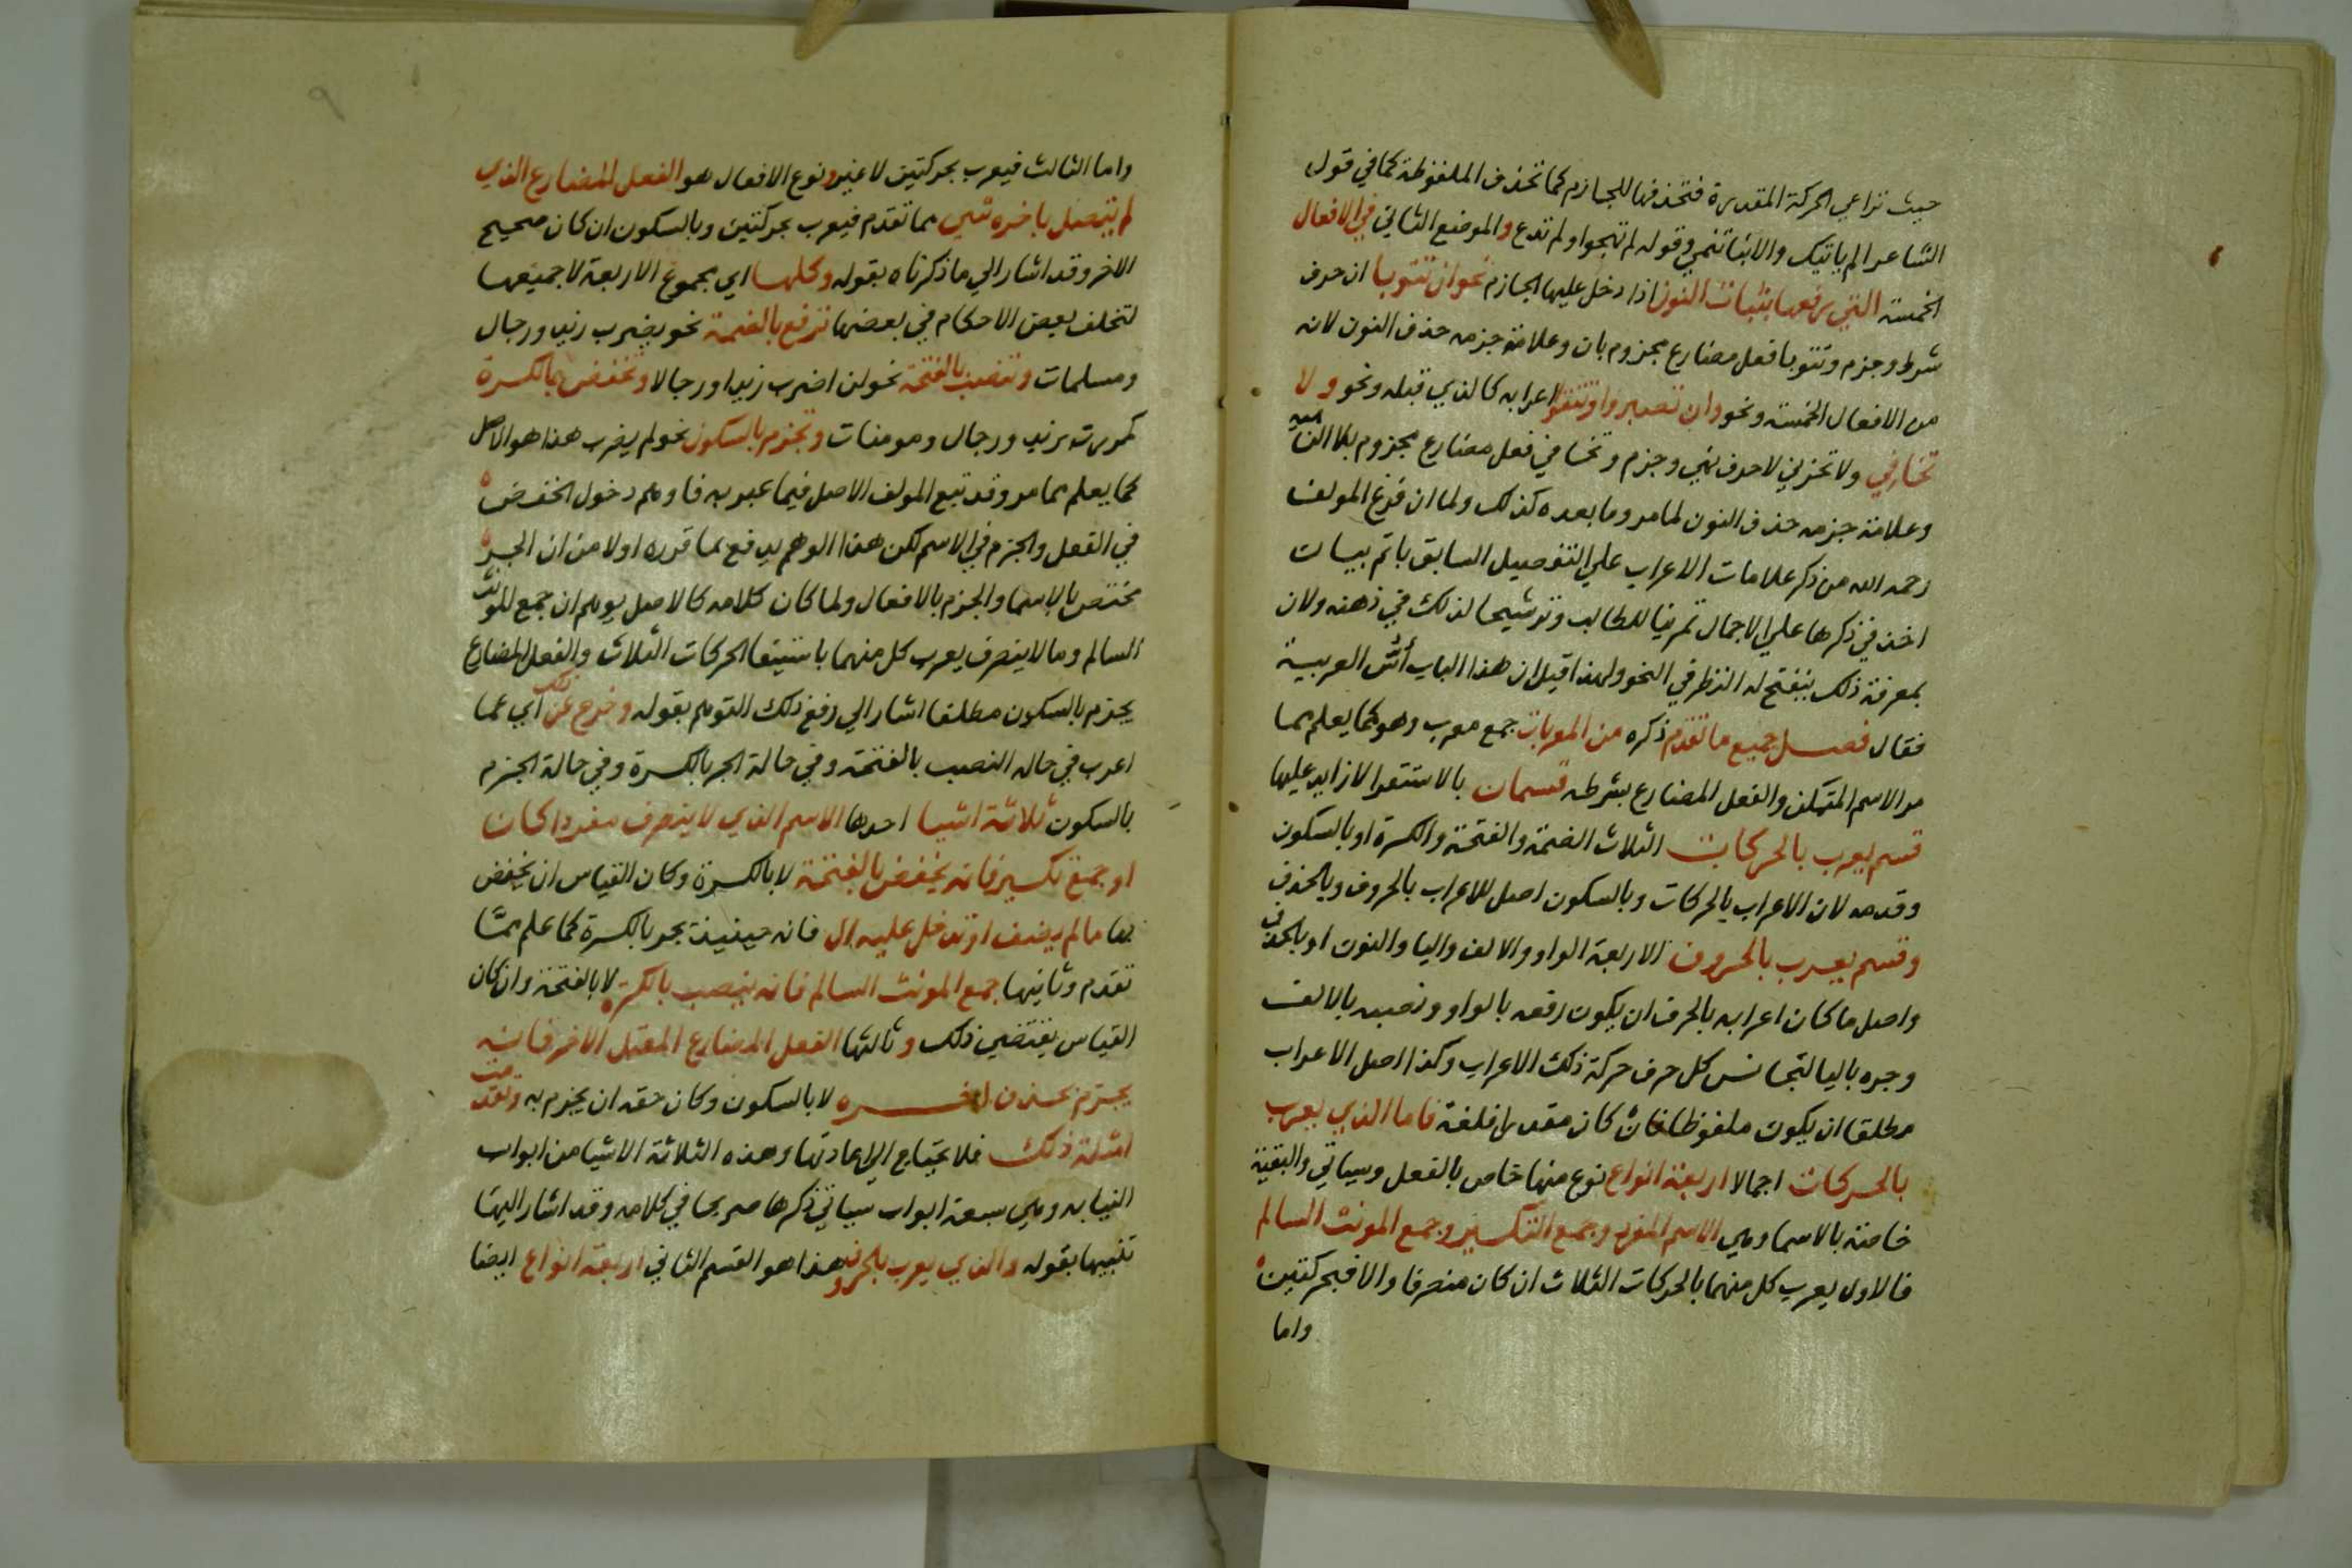 حيث تراعي الحركة المقدرة فتحذفها للجازم كما تحذف الملفوظة كما في قول
الشاعر الم ياتيك والانبا تنمي وقوله لم تهجو ولم تدع والموضع الثاني في الافعال
الخمسة التي رفعها بثبات النون اذا دخل عليها الجازم نحو ان تتوبا ان حرف
شرط وجزم وتتوبا فعل مضارع مجزوم بان وعلامة جزمه حذف النون لانه
من الافعال الخمسة ونحو وان تصبروا وتتقوا اعرابه كالذي قبله ونحو ولا
تخافي ولا تحزني لا حرف نهي وجزم وتخافي فعل مضارع مجزوم بلا الناهية
وعلامة جزمه حذف النون لما مر وما بعده كذلك ولما ان فرغ المولف
رحمه الله من ذكر علامات الاعراب علي التفصيل السابق باتم بيان
اخذ في ذكرها علي الاجمال تمرينا للطالب وترشيحا لذلك في ذهنه ولان
بمعرفة ذلك ينفتح له النظر في النحو ولهذا قيل ان هذا الباب أسّ العربية
فقال فصل جميع ما تقدم ذكره من المعربات جمع معرب وهو كما يعلم مما
مر الاسم المتمكن والفعل المضارع بشرطه قسمان بالاستقرا لا زايد عليها
قسم يعرب بالحركات الثلاث الضمة والفتحة والكسرة او بالسكون
وقدمه لان الاعراب بالحركات وبالسكون اصل للاعراب بالحروف وبالحذف
وقسم يعرب بالحروف الاربعة الواو والالف واليا والنون او بالحذف
واصل ما كان اعرابه بالحرف ان يكون رفعه بالواو ونصبه بالالف
وجره باليا لتجانس كل حرف حركة ذلك الاعراب وكذا اصل الاعراب
مطلقا ان يكون ملفوظا فان كان مقدرا فلغة فاما الذي يعرب
بالحركات اجمالا اربعة انواع نوع منها خاص بالفعل وسياتي والبقية
خاصة بالاسما وهي الاسم المفرد وجمع التكسير وجمع المونث السالم
فالاول يعرب كل منهما بالحركات الثلاث ان كان منصرفا والا فبحركتين
واما
واما الثالث فيعرب بحركتين لا غير ونوع الافعال هو الفعل المضارع الذي
لم يتصل باخره شي مما تقدم فيعرب بحركتين وبالسكون ان كان صحيح
الاخر وقد اشار الي ما ذكرناه بقوله وكلها اي مجموع الاربعة لا جميعها
لتخلف بعض الاحكام في بعضها ترفع بالضمة نحو يضرب زيد ورجال
ومسلمات وتنصب بالفتحة نحو لن اضرب زيدا ورجالا وتخفض بالكسرة
كمررت بزيد ورجال ومومنات وتجزم بالسكون نحو لم يضرب هذا هو الاصل
كما يعلم مما مر وقد تبع المولف الاصل فيما عبر به فاوهم دخول الخفض
في الفعل والجزم في الاسم لكن هذا الوهم يدفع بما قرره اولا من ان الجر
مختص بالاسما والجزم بالافعال ولما كان كلامه كالاصل يوهم ان جمع المونث
السالم وما لا ينصرف يعرب كل منهما باستيفا الحركات الثلاث والفعل المضارع
يجزم بالسكون مطلقا اشار الي رفع ذلك التوهم بقوله وخرج عن ذلك اي عما
اعرب في حاله النصب بالفتحة وفي حالة الجر بالكسرة وفي حالة الجزم
بالسكون ثلاثة اشيا احدها الاسم الذي لا ينصرف مفردا كان
او جمع تكسير فانه يخفض بالفتحة لا بالكسرة وكان القياس ان يخفض
بها ما لم يضف او تدخل عليه ال فانه حينيذ يجر بالكسرة كما علم ممّا
تقدم وثانيها جمع المونث السالم فانه ينصب بالكسرة لا بالفتحة وان كان
القياس يقتضي ذلك وثالثها الفعل المضارع المعتل الاخر فانه
يجزم بحذف اخره لا بالسكون وكان حقه ان يجزم به وتقدمت
امثلة ذلك فلا يحتاج الي اعادتها وهذه الثلاثة الاشيا من ابواب
النيابه وهي سبعة ابواب سياتي ذكرها صريحا في كلامه وقد اشار اليها
تنبيها بقوله والذي يعرب بالحروف هذا هو القسم الثاني اربعة انواع ايضا